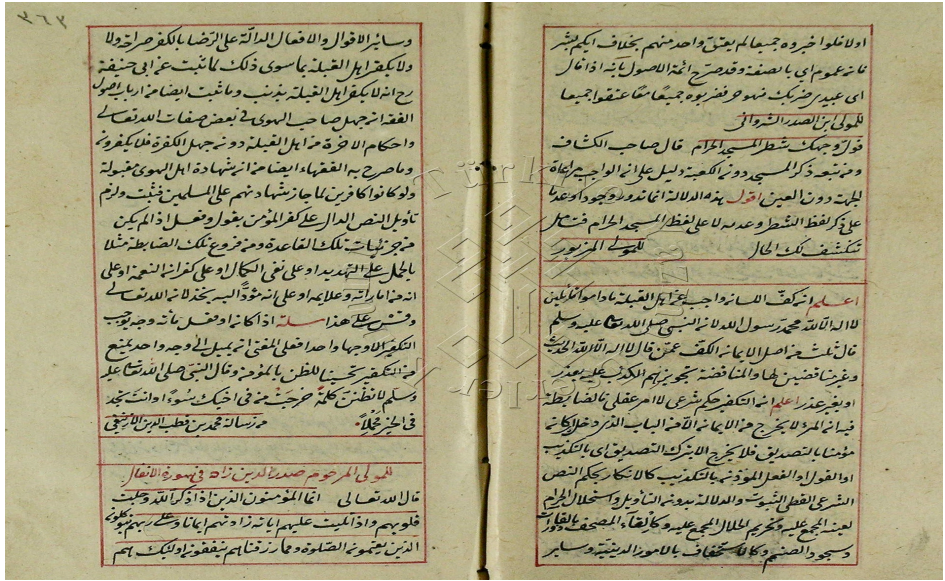 او لا قلوا خبروه جميعا لم يعتق واحد منهم بخلاف ايكم بشر
فانه عموم اى بالصفة وقد صرح ائمة الاصول بانه اذا قال
اى عبيدى ضربك فهو حر فضربوه جميعا معا عتقوا جميعا
للمولى ابن الصدر الشروانى
فول وجهك شطر المسجد الحرام قال صاحب الكشاف
ومن تبعه ذكر المسجد دون الكعبة دليل على ان الواجب مراعاة
الجهة دون العين اقول هذه الدلالة انما تدور وجودا وعدما
على ذكر لفظ الشطر وعدمه لا على لفظ المسجد الحرام فتأمل
تنكشف لك الحال للمولى المزبور
اعلم ان كف اللسان واجب عن اهل القبلة ما داموا قائلين
لا اله الا الله محمد رسول الله لان النبى صلى الله تعالى عليه وسلم
قال ثلث من اصل الايمان الكف عمن قال لا اله الا الله الحديث
وغير مناقضين لها والمناقضة تجويزهم الكذب عليه بعذر
او بغير عذر اعلم ان التكفير حكم شرعى لا امر عقلى فالضابطة
فيه ان المرء لا يخرج من الايمان الا من الباب الذى دخل وكان
مؤمنا بالتصديق فلا يخرج الا بترك التصديق اى بالتكذيب
او القول او الفعل المؤذن بالتكذيب كالانكار بحكم النص
الشرعى القطعى الثبوت والدلالة بدون التأويل واستحلال الحرام
لعينه المجمع عليه وتحريم الحلال المجمع عليه وكالقاء المصحف بالقاذورات
وسجود الصنم وكالاستخفاف بالامور الدينية وسائر
٣٦٣
وسائر الاقوال والافعال الدالة على الرضا بالكفر صراحة ولا
ولا يكفر اهل القبلة بما سوى ذلك لما ثبت عن ابى حنيفة
رح انه لا يكفر اهل القبلة بذنب وما ثبت ايضا من ارباب اصول
الفقه ان جهل صاحب الهوى فى بعض صفات الله تعالى
واحكام الاخرة من اهل القبلة دون جهل الكفرة فلا يكفرون
وما صرح به الفقهاء ايضا من ان شهادة اهل الهوى مقبولة
ولو كانوا كافرين لما جاز شهادتهم على المسلمين فثبت ولزم
تأويل النص الدال على كفر المؤمن بقول وفعل اذا لم يكن
من جزئيات تلك القاعدة ومن فروع تلك الضابطة مثلا
بالحمل على التهديد او على نفى الكمال او على كفران النعمة او على
انه من اماراته وعلايمه او على انه مؤد اليه بخذلان الله تعالى
وقس على هذا مسئلة اذا كان او فعل مائة وجه يوجب
التكفير الا وجها واحدا فعلى المفتى ان يميل الى وجه واحد يمنع
من التكفير تحسينا للظن بالمؤمن وقال النبى صلى الله تعالى عليه
وسلم لا تظنن كلمة خرجت من فى اخيك سوء او انت تجد
فى الخير محملا من رسالة محمد بن قطب الدين الازنيقى
للمولى المرحوم صدر الدين زاده فى سورة الانفال
قال الله تعالى انما المؤمنون الذين اذا ذكر الله وجلت
قلوبهم واذا تليت عليهم اياته زادتهم ايمانا وعلى ربهم يتوكلون
الذين يقيمون الصلوة ومما رزقناهم ينفقون اولئك هم